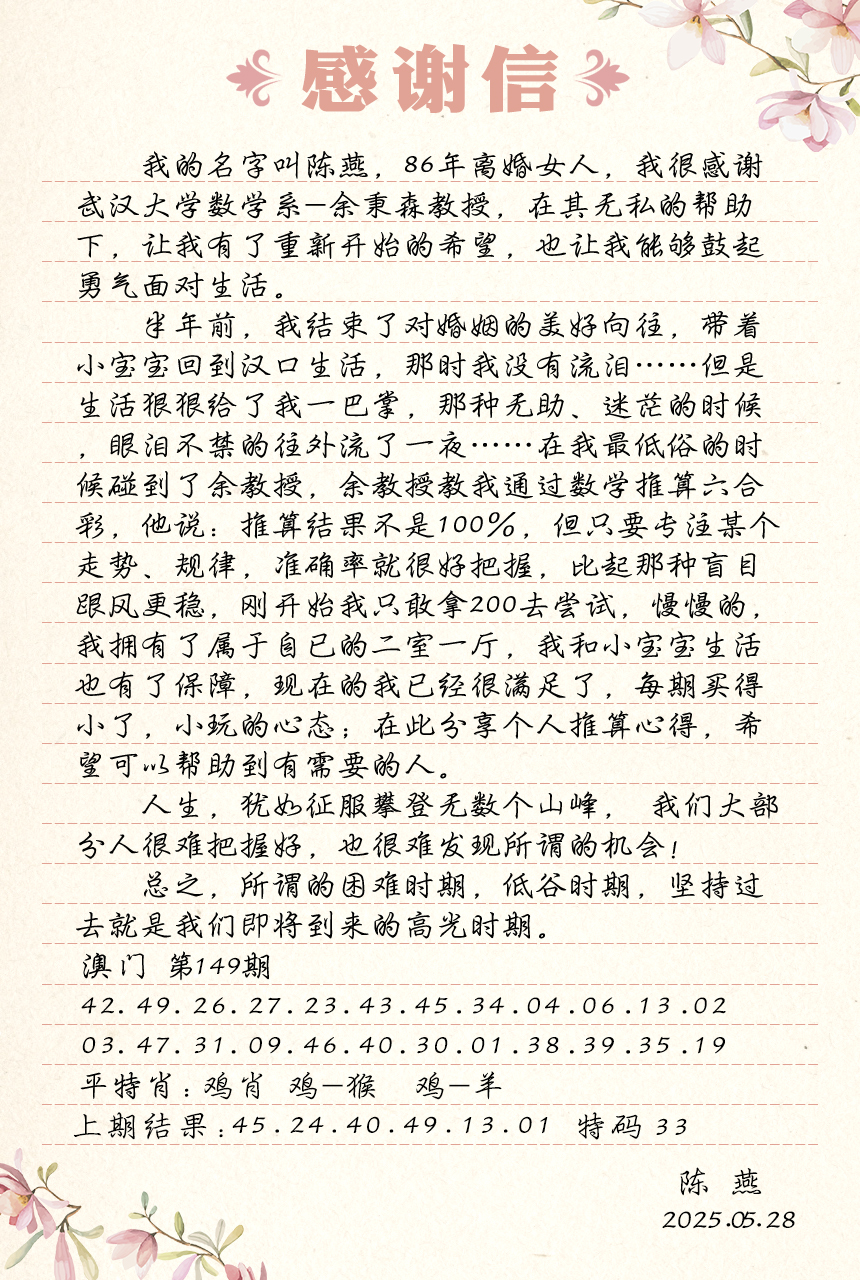 感谢信
我的名字叫陈燕，86年离婚女人，我很感谢
武汉大学数学系—余秉森教授，在其无私的帮助
下，让我有了重新开始的希望，也让我能够鼓起
勇气面对生活。
半年前，我结束了对婚姻的美好向往，带着
小宝宝回到汉口生活，那时我没有流泪……但是
生活狠狠给了我一巴掌，那种无助、迷茫的时候
，眼泪不禁的往外流了一夜……在我最低俗的时
候碰到了余教授，余教授教我通过数学推算六合
彩，他说：推算结果不是100%，但只要专注某个
走势、规律，准确率就很好把握，比起那种盲目
跟风更稳，刚开始我只敢拿200去尝试，慢慢的，
我拥有了属于自已的二室一厅，我和小宝宝生活
也有了保障，现在的我已经很满足了，每期买得
小了，小玩的心态；在此分享个人推算心得，希
望可以帮助到有需要的人。
人生，犹如征服攀登无数个山峰， 我们大部
分人很难把握好，也很难发现所谓的机会！
总之，所谓的困难时期，低谷时期，坚持过
去就是我们即将到来的高光时期。
澳门 第149期
42.49.26.27.23.43.45.34.04.06.13.02
03.47.31.09.46.40.30.01.38.39.35.19
平特肖：鸡肖 鸡—猴 鸡—羊
上期结果：45.24.40.49.13.01 特码 33
陈 燕
2025.05.28